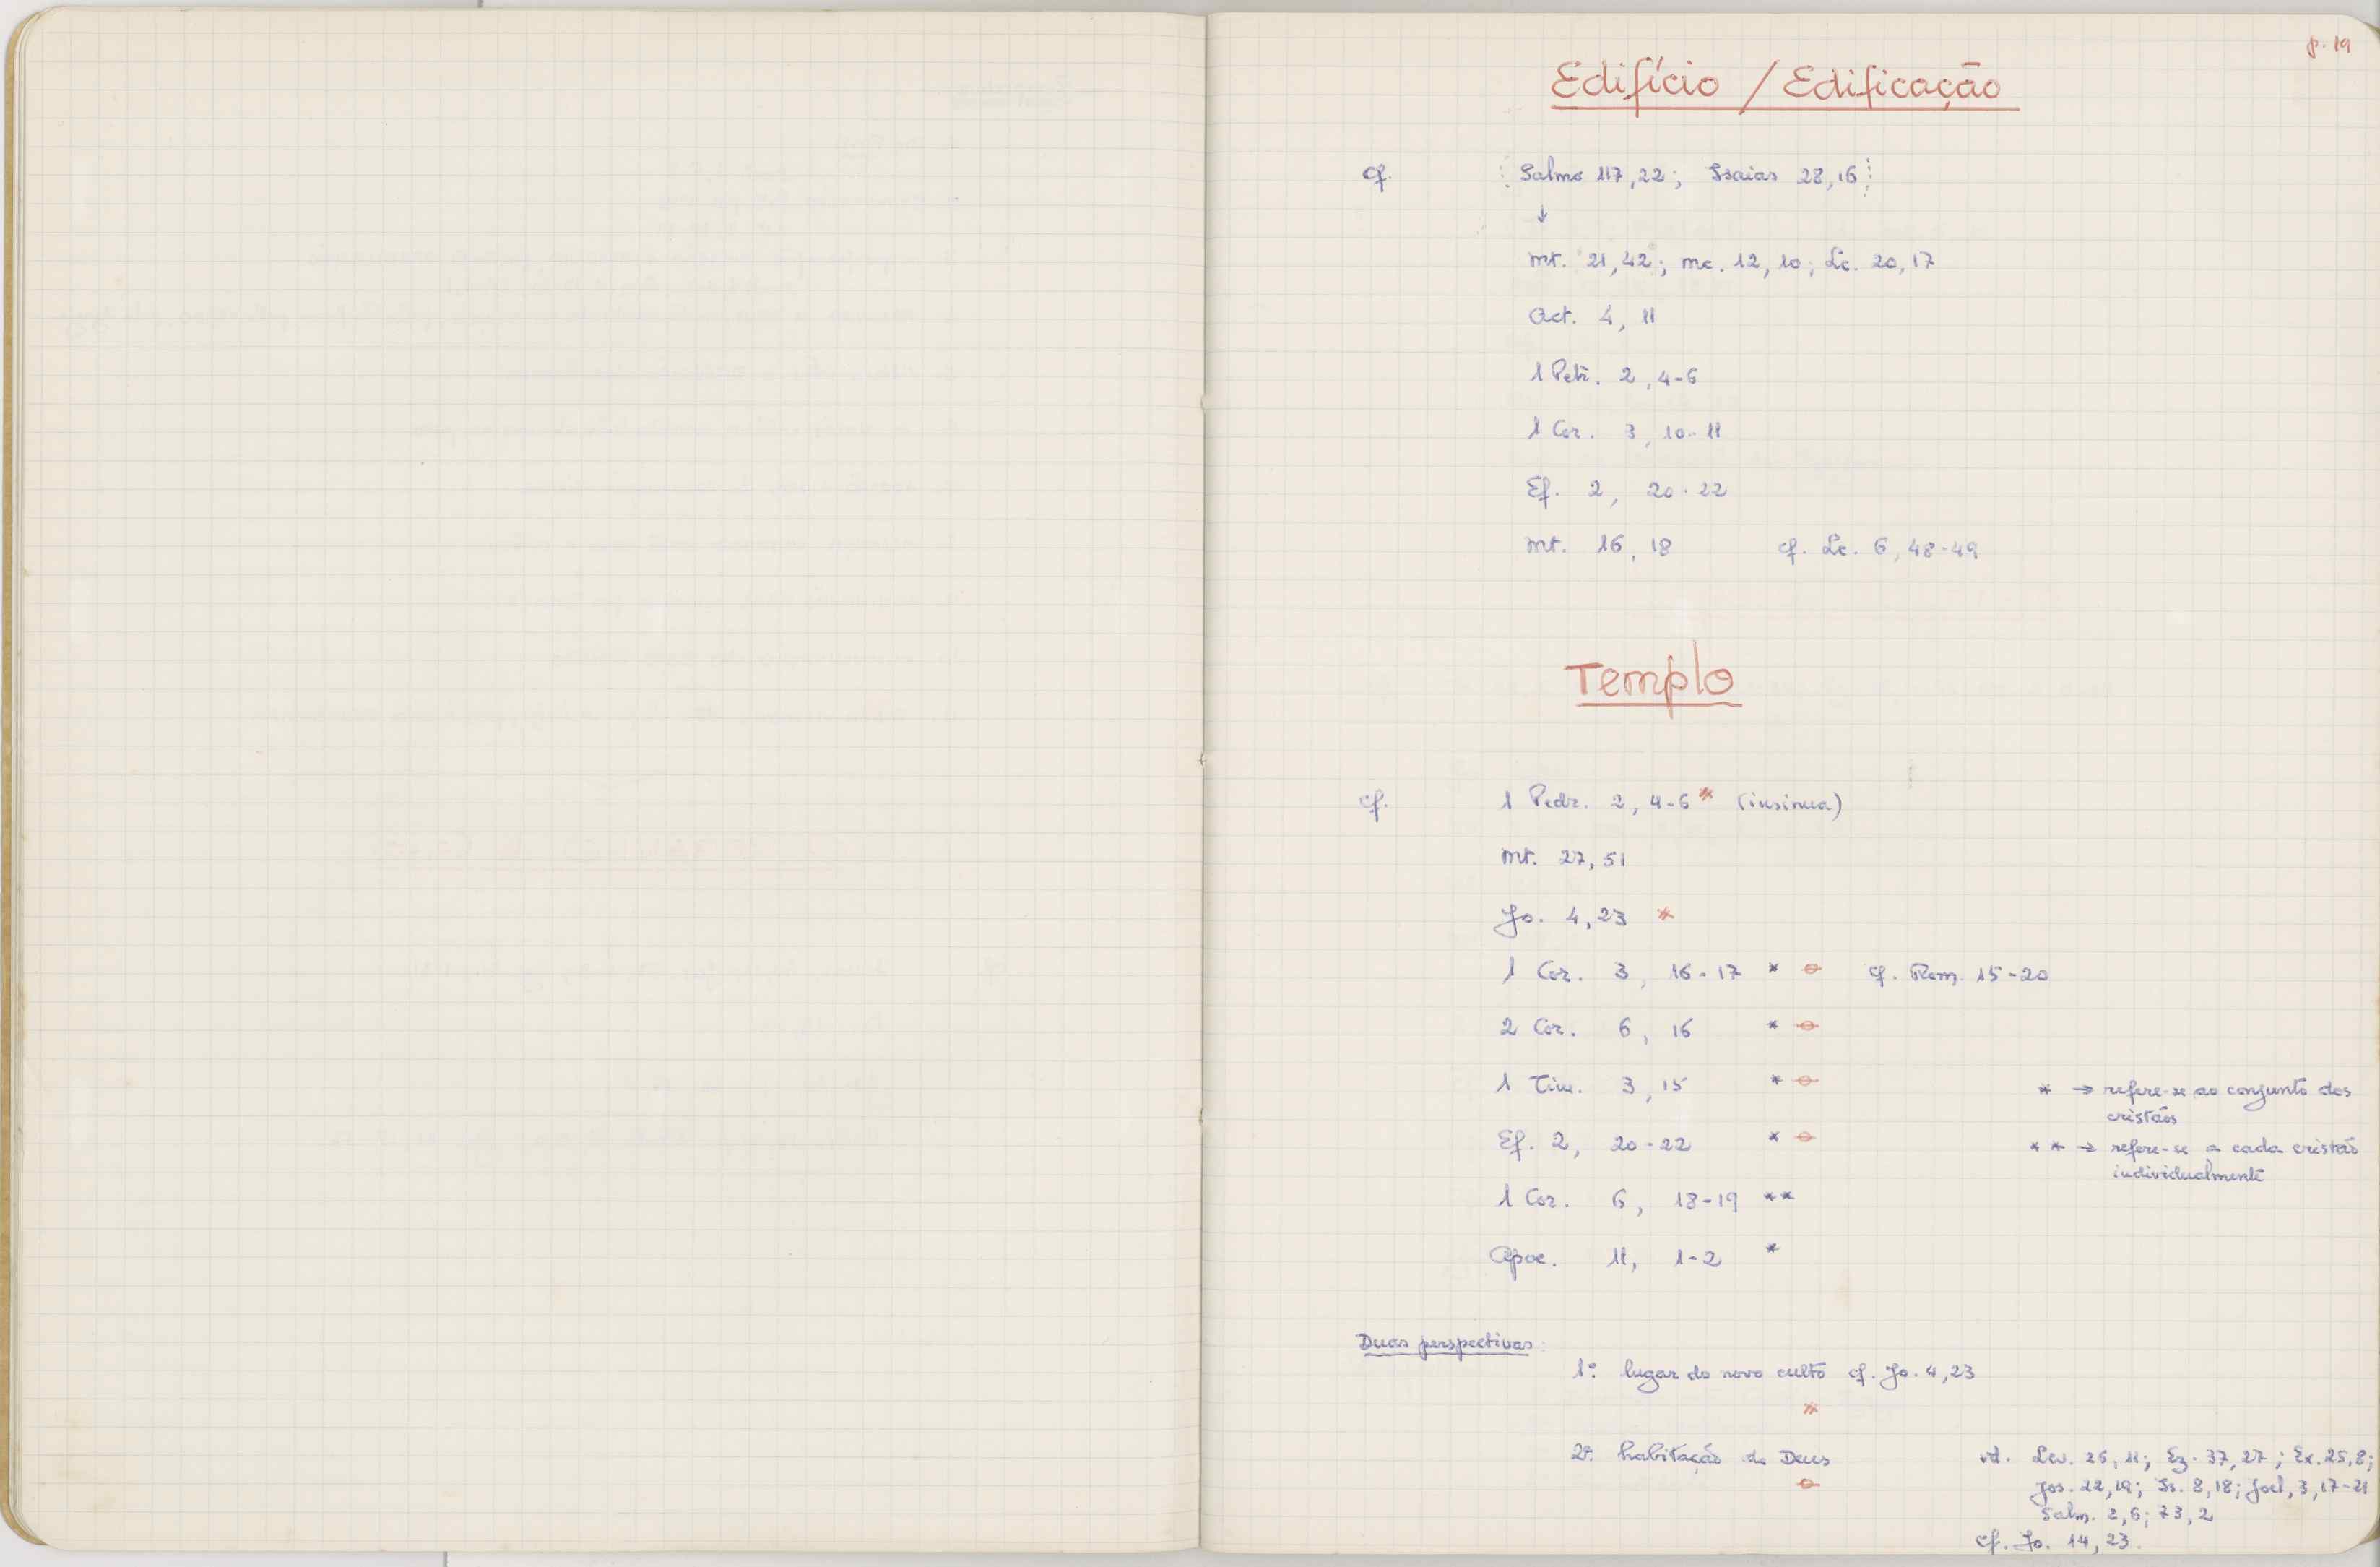 p. 19
Edifício / Edificação
cf. Salmo 117,22; Isaias 28,16;
↓
Mt. 21,42; Mc. 12,10; Lc. 20,17
Act. 4, 11
1 Petr. 2, 4-6
1 Cor. 3, 10-11
Ef. 2, 20-22
Mt. 16, 18 cf. Lc. 6, 48-49
Templo
cf. 1 Pedr. 2, 4-6 * (insinua)
Mt. 27, 51
Jo. 4,23 *
1 Cor. 3, 16-17 * o cf. Rom. 15-20
2 Cor. 6, 16 * o
1 Tim. 3, 15 * o
Ef. 2, 20-22 * o
1 Cor. 6, 18-19 **
Apoc. 11, 1-2 *
* → refere-se ao conjunto dos
cristãos
* * → refere-se a cada cristão
individualmente
Duas perspectivas:
1º: lugar do novo culto cf. Jo. 4,23
*
2º: habitação de Deus
o
vd. Lev. 26, 11; Ez. 37, 27; Ex. 25,8;
Jos. 22,19; Is. 8,18; Joel, 3, 17-21
Salm. 2,6; 73,2
cf. Jo. 14, 23.